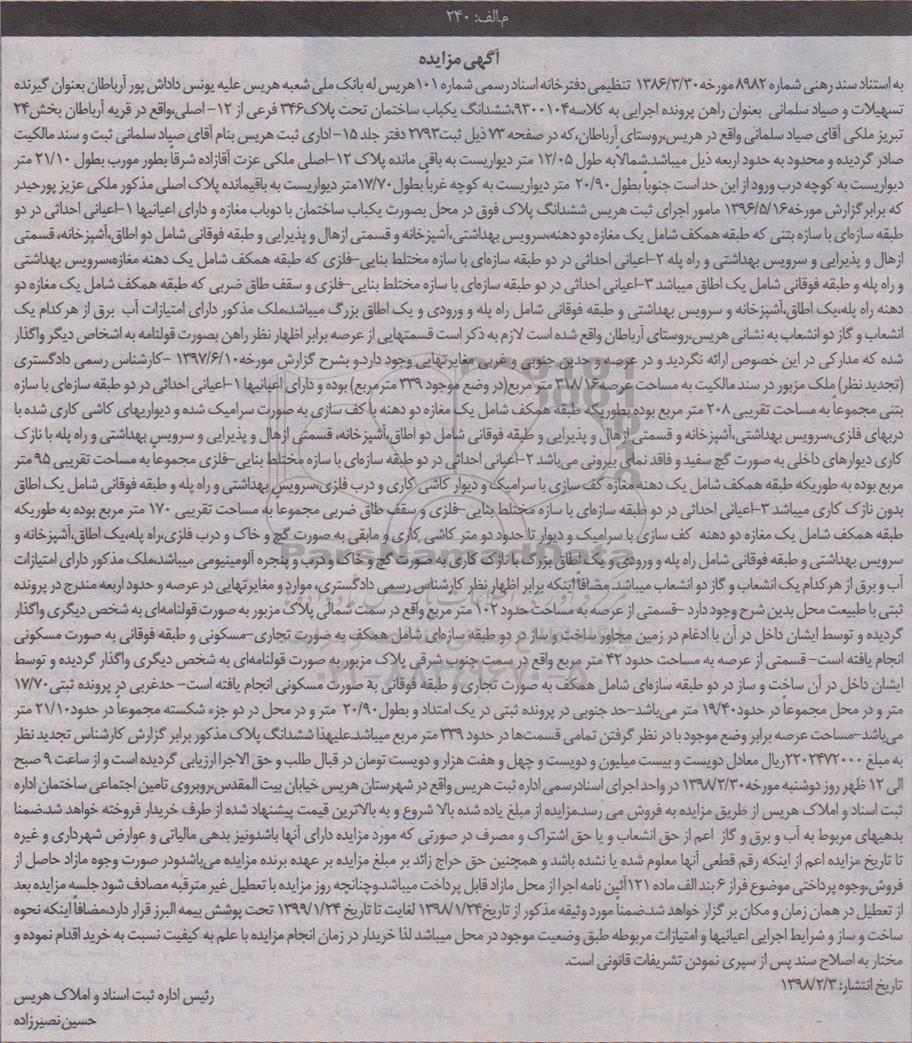 م‌الف: ۲۴۰
آگهی مزایده
به استناد سند رهنی شماره ۸۹۸۲ مورخه ۱۳۸۶/۳/۳۰ تنظیمی دفترخانه اسناد رسمی شماره ۱۰۱ هریس له بانک ملی شعبه هریس علیه یونس داداش پور آرباطان بعنوان گیرنده
تسهیلات و صیاد سلمانی بعنوان راهن پرونده اجرایی به کلاسه ۹۳۰۰۱۰۴،ششدانگ یکباب ساختمان تحت پلاک ۳۴۶ فرعی از ۱۲- اصلی،واقع در قریه آرباطان بخش ۲۴
تبریز ملکی آقای صیاد سلمانی واقع در هریس،روستای آرباطان،که در صفحه ۷۳ ذیل ثبت ۲۷۹۳ دفتر جلد ۱۵- اداری ثبت هریس بنام آقای صیاد سلمانی ثبت و سند مالکیت
صادر گردیده و محدود به حدود اربعه ذیل میباشد.شمالا به طول ۱۲/۰۵ متر دیواریست به باقی مانده پلاک ۱۲-اصلی ملکی عزت آقازاده شرقا بطور مورب بطول ۲۱/۱۰ متر
دیواریست به کوچه درب ورود از این حد است جنوباً بطول ۲۰/۹۰ متر دیواریست به کوچه غرباً بطول ۱۷/۷۰ متر دیواریست به باقیمانده پلاک اصلی مذکور ملکی عزیز پورحیدر
که برابر گزارش مورخه ۱۳۹۶/۵/۱۶ مامور اجرای ثبت هریس ششدانگ پلاک فوق در محل بصورت یکباب ساختمان با دوباب مغازه و دارای اعیانیها ۱-اعیانی احداثی در دو
طبقه سازه‌ای با سازه بتنی که طبقه همکف شامل یک مغازه دو دهنه،سرویس بهداشتی،آشپزخانه و قسمتی ازهال و پذیرایی و طبقه فوقانی شامل دو اطاق،آشپزخانه، قسمتی
ازهال و پذیرایی و سرویس بهداشتی و راه پله ۲-اعیانی احداثی در دو طبقه سازه‌ای با سازه مختلط بنایی-فلزی که طبقه همکف شامل یک دهنه مغازه،سرویس بهداشتی
و راه پله و طبقه فوقانی شامل یک اطاق میباشد ۳-اعیانی احداثی در دو طبقه سازه‌ای با سازه مختلط بنایی-فلزی و سقف طاق ضربی که طبقه همکف شامل یک مغازه دو
دهنه راه پله،یک اطاق،آشپزخانه و سرویس بهداشتی و طبقه فوقانی شامل راه پله و ورودی و یک اطاق بزرگ میباشد،ملک مذکور دارای امتیازات آب برق از هر کدام یک
انشعاب و گاز دو انشعاب به نشانی هریس،روستای آرباطان واقع شده است لازم به ذکر است قسمتهایی از عرصه برابر اظهار نظر راهن بصورت قولنامه به اشخاص دیگر واگذار
شده که مدارکی در این خصوص ارائه نگردید و در عرصه و حدین جنوبی و غربی مغایرتهایی وجود دارد.و بشرح گزارش مورخه ۱۳۹۷/۶/۱۰ -کارشناس رسمی دادگستری
(تجدید نظر) ملک مزبور در سند مالکیت به مساحت عرصه ۳۱۷/۱۶ متر مربع(در وضع موجود ۳۳۹ مترمربع) بوده و دارای اعیانیها ۱-اعیانی احداثی در دو طبقه سازه‌ای با سازه
بتنی مجموعاً به مساحت تقریبی ۲۰۸ متر مربع بوده بطوریکه طبقه همکف شامل یک مغازه دو دهنه با کف سازی به صورت سرامیک شده و دیواریهای کاشی کاری شده با
دربهای فلزی،سرویس بهداشتی،آشپزخانه و قسمتی ازهال و پذیرایی و طبقه فوقانی شامل دو اطاق،آشپزخانه، قسمتی ازهال و پذیرایی و سرویس بهداشتی و راه پله با نازک
کاری دیوارهای داخلی به صورت گچ سفید و فاقد نمای بیرونی می‌باشد ۲-اعیانی احداثی در دو طبقه سازه‌ای با سازه مختلط بنایی-فلزی مجموعا به مساحت تقریبی ۹۵ متر
مربع بوده به طوریکه طبقه همکف شامل یک دهنه مغازه کف سازی با سرامیک و دیوار کاشی کاری و درب فلزی،سرویس بهداشتی و راه پله و طبقه فوقانی شامل یک اطاق
بدون نازک کاری میباشد ۳-اعیانی احداثی در دو طبقه سازه‌ای با سازه مختلط بنایی-فلزی و سقف طاق ضربی مجموعا به مساحت تقریبی ۱۷۰ متر مربع بوده به طوریکه
طبقه همکف شامل یک مغازه دو دهنه کف سازی با سرامیک و دیوار تا حدود دو متر کاشی کاری و مابقی به صورت گچ و خاک و درب فلزی،راه پله،یک اطاق،آشپزخانه و
سرویس بهداشتی و طبقه فوقانی شامل راه پله و ورودی و یک اطاق بزرگ با نازک کاری به صورت گچ و خاک و درب و پنجره آلومینیومی میباشد،ملک مذکور دارای امتیازات
آب و برق از هر کدام یک انشعاب و گاز دو انشعاب میباشد.مضافاً اینکه برابر اظهار نظر کارشناس رسمی دادگستری، موارد و مغایرتهایی در عرصه و حدود اربعه مندرج در پرونده
ثبتی با طبیعت محل بدین شرح وجود دارد -قسمتی از عرصه به مساحت حدود ۱۰۲ متر مربع واقع در سمت شمالی پلاک مزبور به صورت قولنامه‌ای به شخص دیگری واگذار
گردیده و توسط ایشان داخل در آن با ادغام در زمین مجاور ساخت و ساز در دو طبقه سازه‌ای شامل همکف به صورت تجاری-مسکونی و طبقه فوقانی به صورت مسکونی
انجام یافته است- قسمتی از عرصه به مساحت حدود ۴۲ متر مربع واقع در سمت جنوب شرقی پلاک مزبور به صورت قولنامه‌ای به شخص دیگری واگذار گردیده و توسط
ایشان داخل در آن ساخت و ساز در دو طبقه سازه‌ای شامل همکف به صورت تجاری و طبقه فوقانی به صورت مسکونی انجام یافته است- حدغربی در پرونده ثبتی ۱۷/۷۰
متر و در محل مجموعا در حدود ۱۹/۴۰ متر می‌باشد-حد جنوبی در پرونده ثبتی در یک امتداد و بطول ۲۰/۹۰ متر و در محل در دو جزء شکسته مجموعاً در حدود ۲۱/۱۰ متر
می‌باشد-مساحت عرصه برابر وضع موجود با در نظر گرفتن تمامی قسمت‌ها در حدود ۳۳۹ متر مربع میباشد.علیهذا ششدانگ پلاک مذکور برابر گزارش کارشناس تجدید نظر
به مبلغ ۲۲۰۲۴۷۲۰۰۰ریال معادل دویست و بیست میلیون و دویست و چهل و هفت هزار و دویست تومان در قبال طلب و حق الاجرا ارزیابی گردیده است و از ساعت ۹ صبح
الی ۱۲ ظهر روز دوشنبه مورخه ۱۳۹۸/۲/۳۰ در واحد اجرای اسنادرسمی اداره ثبت هریس واقع در شهرستان هریس خیابان بیت المقدس،روبروی تامین اجتماعی ساختمان اداره
ثبت اسناد و املاک هریس از طریق مزایده به فروش می رسد.مزایده از مبلغ یاده شده بالا شروع و به بالاترین قیمت پیشنهاد شده از طرف خریدار فروخته خواهد شد.ضمنا
بدهیهای مربوط به آب و برق و گاز اعم از حق انشعاب و یا حق اشتراک و مصرف در صورتی که مورد مزایده دارای آنها باشدونیز بدهی مالیاتی و عوارض شهرداری و غیره
تا تاریخ مزایده اعم از اینکه رقم قطعی آنها معلوم شده یا نشده باشد و همچنین حق حراج زائد بر مبلغ مزایده بر عهده برنده مزایده می‌باشدودر صورت وجوه مازاد حاصل از
فروش،وجوه پرداختی موضوع فراز ۶ بند الف ماده ۱۲۱آئین نامه اجرا از محل مازاد قابل پرداخت میباشد.وچنانچه روز مزایده با تعطیل غیر مترقبه مصادف شود جلسه مزایده بعد
از تعطیل در همان زمان و مکان بر گزار خواهد شد.ضمناً مورد وثیقه مذکور از تاریخ ۱۳۹۸/۱/۲۴ لغایت تا تاریخ ۱۳۹۹/۱/۲۴ تحت پوشش بیمه البرز قرار دارد،مضافاً اینکه نحوه
ساخت و ساز و شرایط اجرایی اعیانیها و امتیازات مربوطه طبق وضعیت موجود در محل میباشد لذا خریدار در زمان انجام مزایده با علم به کیفیت نسبت به خرید اقدام نموده و
مختار به اصلاح سند پس از سپری نمودن تشریفات قانونی است.
تاریخ انتشار: ۱۳۹۸/۲/۳
رئیس اداره ثبت اسناد و املاک هریس
حسین نصیرزاده
ParsNamadData
۰۲۱-۸۸۳۴۹۶۷۰-۵